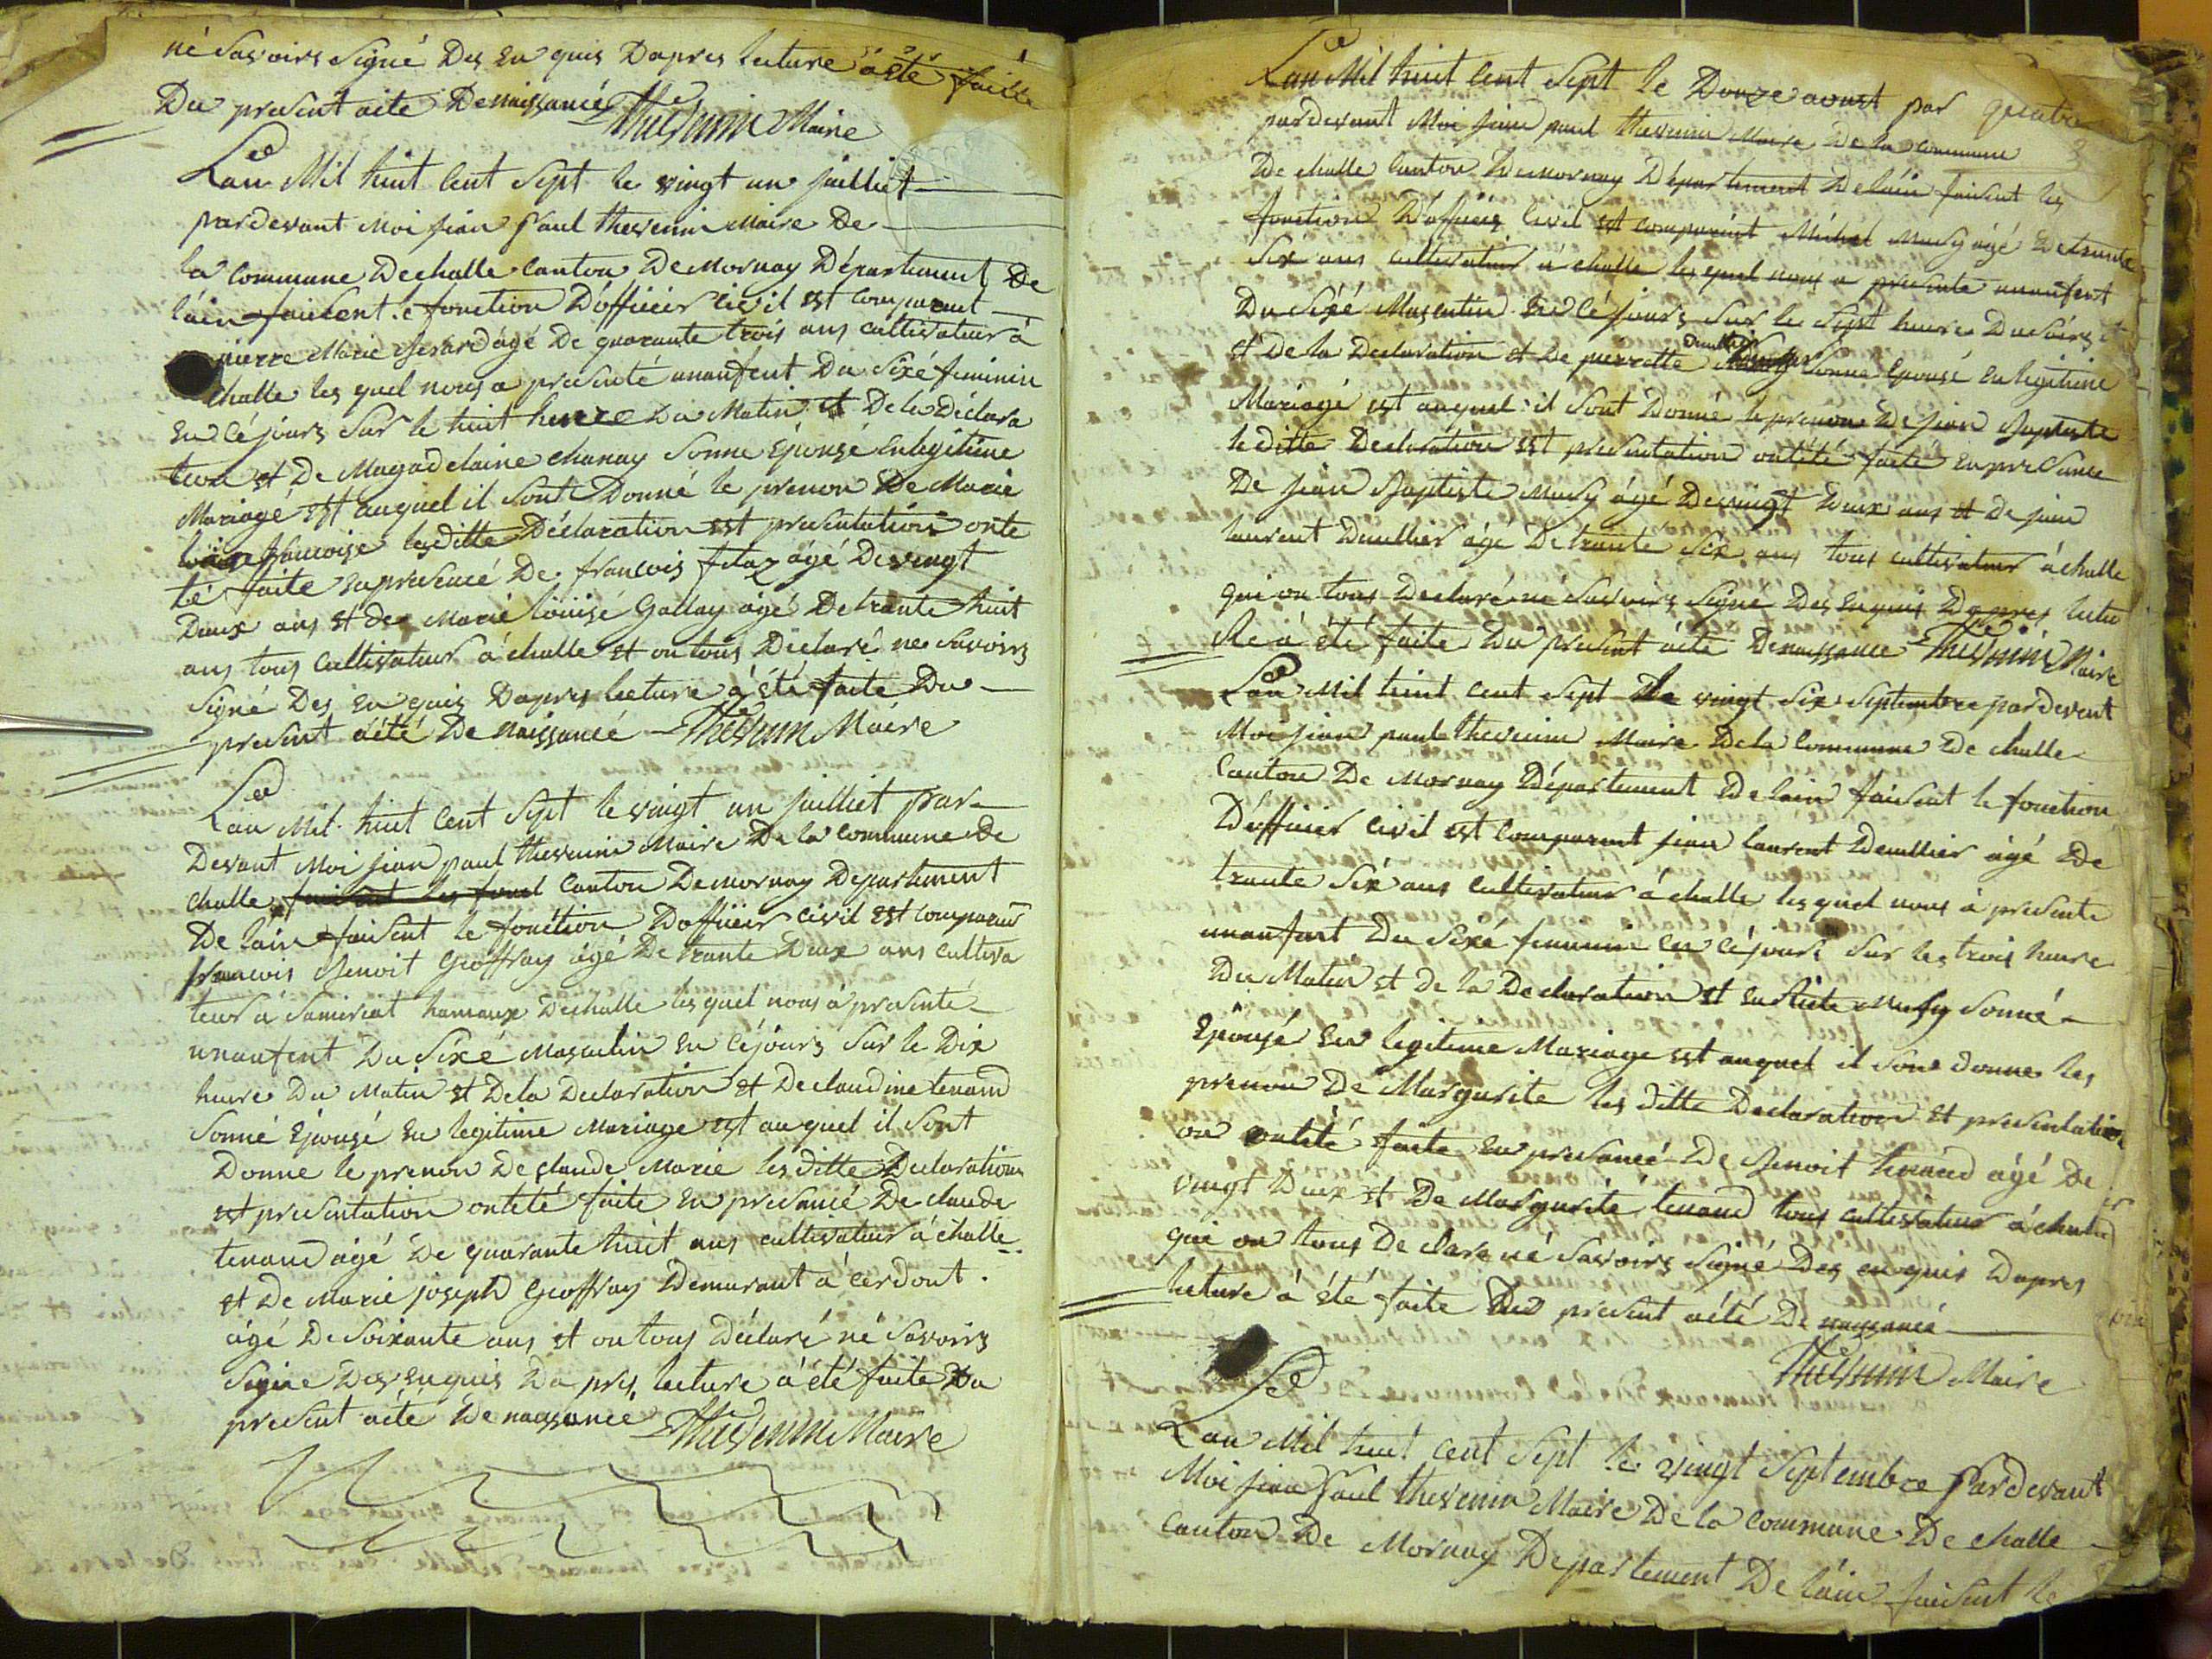 né Savoirs Signé Des En quis Dapres lecture a été faitte
Du présent acte De naissancé Thevenin Maire
Lan Mil huit Cent Sept le vingt un juilliet
pardevant Moi jean Paul thevenin Maire De
la Commune De challe Canton De Mornay Département De
láin faisent. e fonction Dofficier civil est comparent
pierre Marie Gerard ágé De quarante trois ans cultivateur à
Challe les quel nous a presenté unanfent Du Sixé feminin
En céjours Sur le huit heure Du Matin et De la Déclara
tion et De Magadelaine chanay Sonne Épousé En legitime
Mariagé est auquel il Sont Donné le prenon De Marie
françoise lesditte Déclaration est presentation onte
té faite enpresencé De francois filaz ágé De vingt
Deux ans et de Marie louisé Gallay ágé De trante huit
ans tous cultivateur á challe et on tous Déclaré ne Savoirs
Signé Des En quis Dapres lecture a été faite Du
presentácté De naissancé Thevenin Maire
Lan Mil huit Cent Sept le vingt un juilliet par
Devant Moi jean paul thevenin Maire De la Commune De
challe faisant les fonct Canton De mornay Département
De láin faisent le fonction Dofficier civil est comparent
francois Benoit Geoffray ágé De trante Deux ans cultiva
teur a Samiriat hameaux De challe les quel nous à presenté
unanfent Du Sixé Masculin En céjours Sur le Dix
heure Du Matin et De la Declaration et De claudine tenand
Sonné Épousé En legitime Mariage est auquel il Sont
Donne le prenon De Claude Marie les ditte Declaration
est presentation ontété faite En presancé De claude
tenand ágé De quarante huit ans cultivateur á challe
et De Marie joseph Geoffray Demurant á Cerdont.
ágé De Soixante ans et on tous Déclaré né Savoirs
Signe Des En quis Da pres, lecture á été faite Du
present ácté De naissancé Thevenin Maire
Lan Mil huit Cent Sept le Douze aoust par
pardevant Moi jean paul thevenin Maire De la commune
De challe Canton De Mornay Département De láin faisent les
fonction Dofficier Civil est comparent Michel Musy ágé De trante
Six ans cultivateur á challe les quel nous a presente unanfent
Du Sixé Masculin En céjours Sur le Sept heure Du Soirs
Deullier
et De la Declaration et De pierrette Sonne Epousé En legitime
Mariagé est auquel il Sont Donné le prenon De jean Baptiste
leditte Declaration est presentation ontété faite En presance
De jean Baptiste Musy ágé De vingt Deux ans et De jean
laurent Deullier ágé De trante Six ans tous cultivateur á challe
qui on tous Declaré né Savoirs Signé Des En quis Dapres lectu
Re á été faite Du present ácte De naissance Thevenin Maire
Lan Mil huit cent Sept le vingt Six Septembre pardevent
Moi jean paul thevenin Maire De la Commune De challe
Canton De Mornay Département De láin faisent le fonction
D'officier Civil est Comparent jean laurent Deullier ágé De
trante Six ans cultivateur á challe les quel nous á presente
unanfent Du Sixé feminin En céjours Sur les trois heure
Du Matin et de la Declaration et Musy Sonné
Épousé En legitime Mariage est auquel il Sont donne les
prenon De Margurite les ditte Declaration et presentation
on ontété faite En presancé De Benoit tenand ágé De
vingt Deux et De Margurite tenand tous cultivateur á challe
qui on tous De claré né Savoirs Signé Des En quis Dapres
lecture á été faite Du present ácté De naissancé
Thevenin Maire
Lan Mil huit Cent Sept le vingt Septembre Pardevant
Moi jean Paul thevenin Maire De la commune De challe
Canton De Mornay Departement De láin faisent le